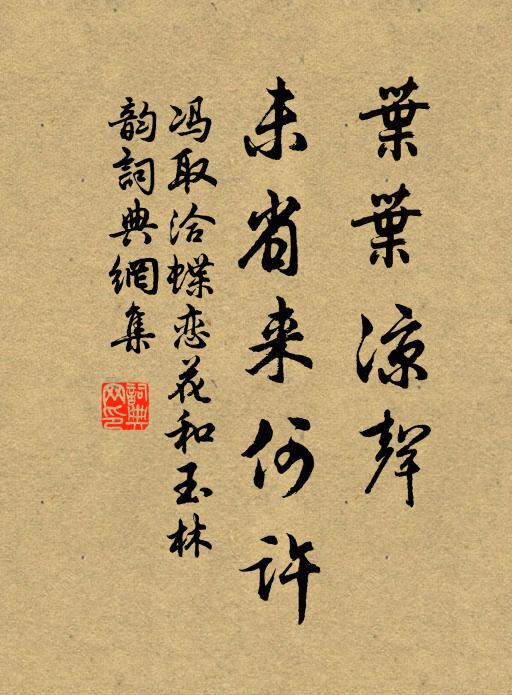 葉葉涼聲
未省来何許
冯取洽蝶恋花和玉林
韵詞典網集
詞典
网印